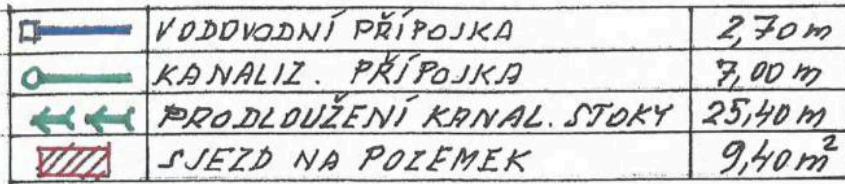 VODOVODNÍ PŘÍPOJKA 2,70 m
KANALIZ. PŘÍPOJKA 7,00 m
PRODLOUŽENÍ KANAL. STOKY 25,40 m
SJEZD NA POZEMEK 9,40 m²